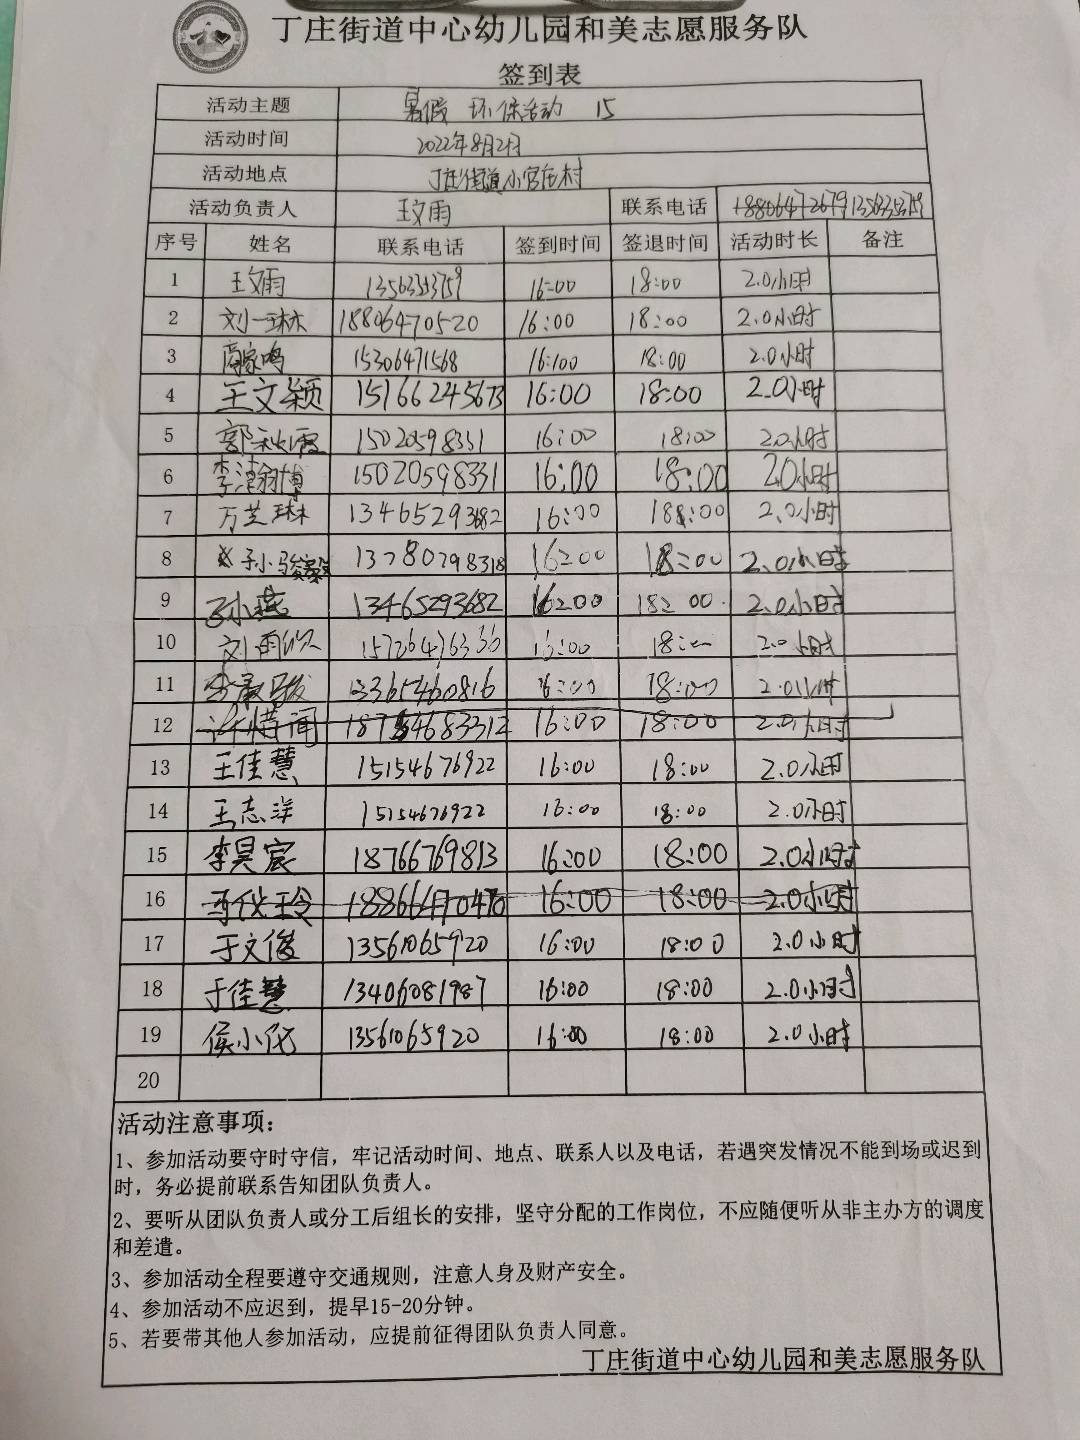 丁庄街道中心幼儿园和美志愿服务队
签到表
活动主题 暑假 环保活动 15
活动时间 2022年8月2日
活动地点 丁庄街道小宫庄村
活动负责人 王文雨 联系电话
序号 姓名 联系电话 签到时间 签退时间 活动时长 备注
1 王文雨 13563533759 16:00 18:00 2.0小时
2 刘一琳 18806470520 16:00 18:00 2.0小时
3 15306471568 16:00 18:00 2.0小时
4 王文颖 15166245673 16:00 18:00 2.0小时
5 郭秋霞 15020598331 16:00 18:00 2.0小时
6 李瀚博 15020598331 16:00 18:00 2.0小时
7 万芝琳 13465293682 16:00 18:00 2.0小时
8 13780798318 16:00 18:00 2.0小时
9 孙小燕 13465293682 16:00 18:00 2.0小时
10 刘雨欣 15726476336 16:00 18:00 2.0小时
11 13365460816 16:00 18:00 2.0小时
12 18754683312 16:00 18:00 2.0小时
13 王佳慧 15154676922 16:00 18:00 2.0小时
14 王志洋 15154676922 16:00 18:00 2.0小时
15 李昊宸 18766769813 16:00 18:00 2.0小时
16 16:00 18:00 2.0小时
17 于文俊 13561065920 16:00 18:00 2.0小时
18 于佳慧 13406081987 16:00 18:00 2.0小时
19 侯小 13561065920 16:00 18:00 2.0小时
20
活动注意事项：
1、参加活动要守时守信，牢记活动时间、地点、联系人以及电话，若遇突发情况不能到场或迟到
时，务必提前联系告知团队负责人。
2、要听从团队负责人或分工后组长的安排，坚守分配的工作岗位，不应随便听从非主办方的调度
和差遣。
3、参加活动全程要遵守交通规则，注意人身及财产安全。
4、参加活动不应迟到，提早15-20分钟。
5、若要带其他人参加活动，应提前征得团队负责人同意。
丁庄街道中心幼儿园和美志愿服务队